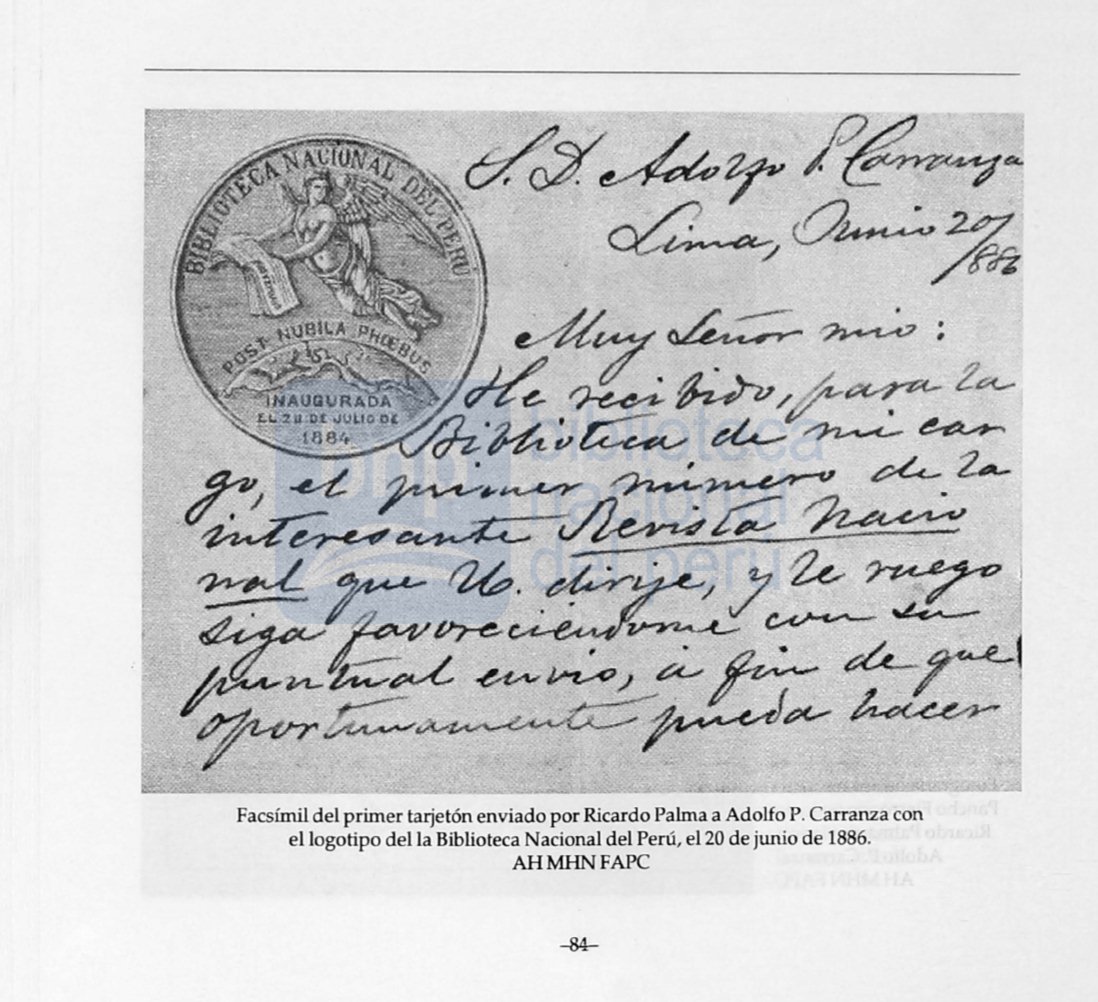 BIBLIOTECA NACIONAL DEL PERÚ
POST NUBILA PHŒBUS
INAUGURADA
EL 28 DE JULIO DE
1884
S. D. Adolfo P. Carranza
Lima, Junio 20/886
Muy Señor mio:
He recibido, para la
Biblioteca de mi car
go, el primer número de la
interesante Revista Nacio
nal que U. dirije, y le ruego
siga favoreciéndome con su
puntual envio, á fin de que
oportunamente pueda hacer
bnp biblioteca
nacional
del perú
Facsímil del primer tarjetón enviado por Ricardo Palma a Adolfo P. Carranza con
el logotipo del la Biblioteca Nacional del Perú, el 20 de junio de 1886.
AH MHN FAPC
–84–